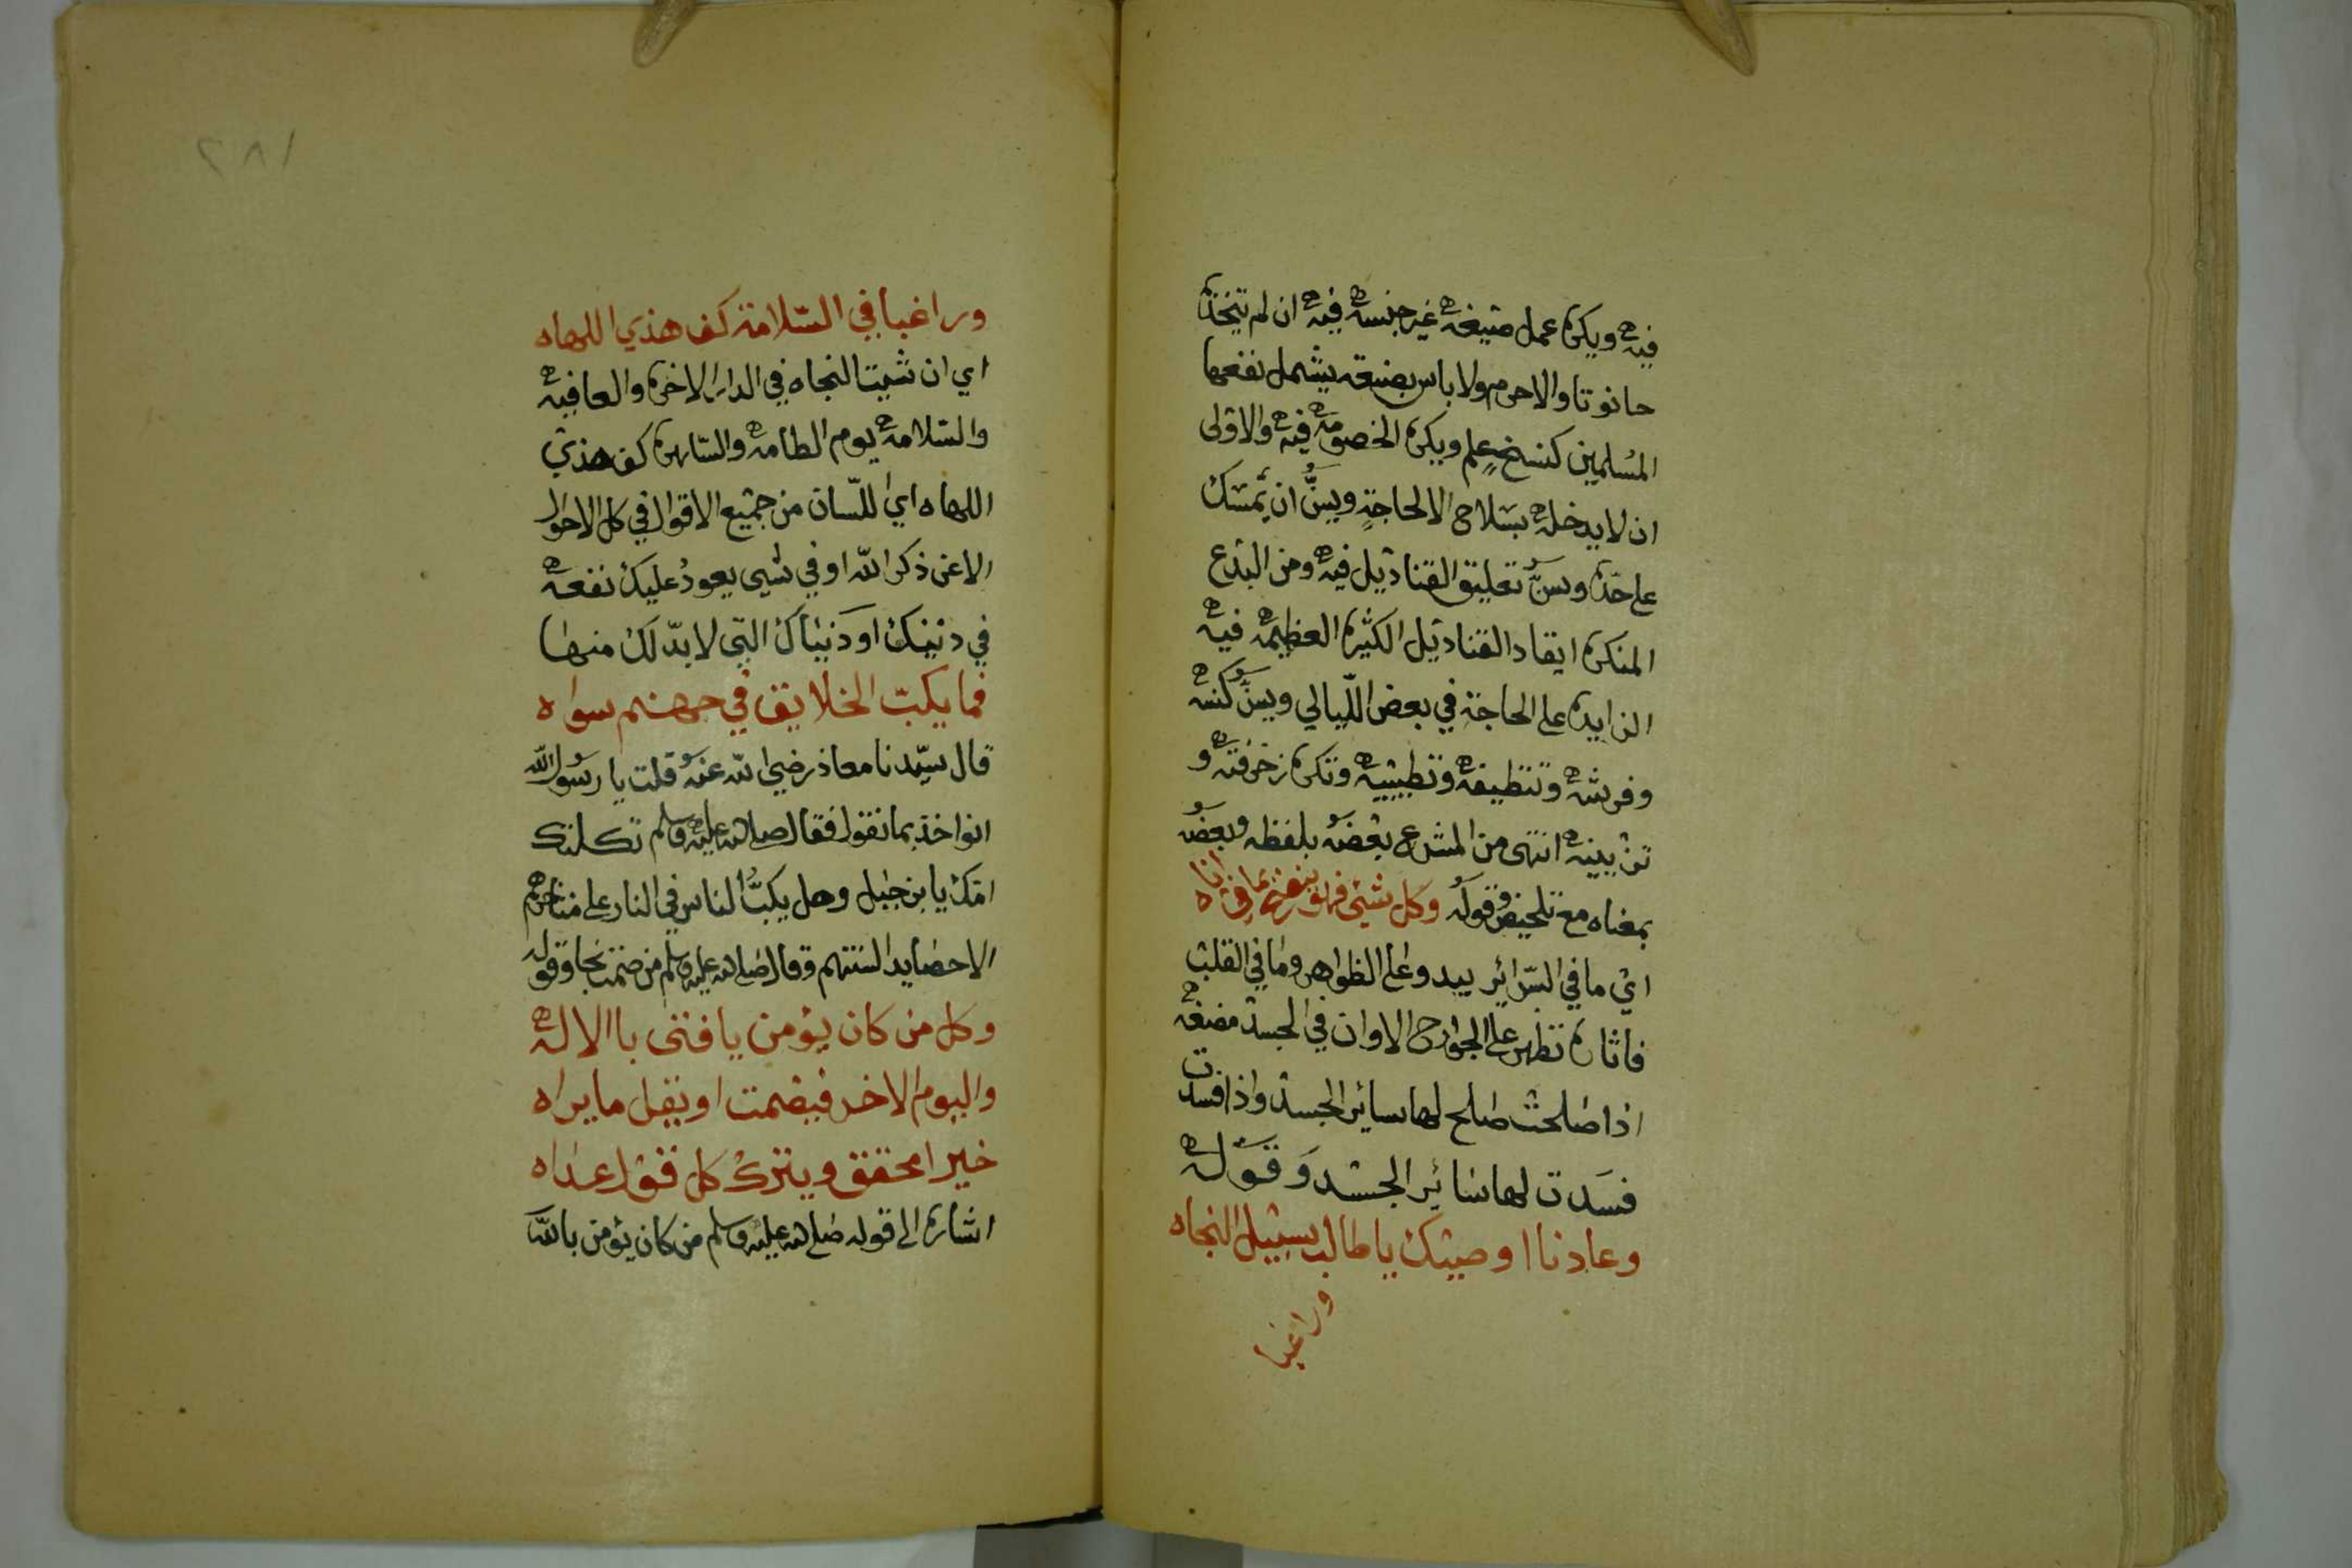 فيه ويكره عمل صنيعة غير جنسه فيه ان لم يتخذه
حانوتا والا حرم ولا باس بصنيعة يشمل نفعها
المسلمين كنسخ علم ويكره الخصومة فيه والاولى
ان لا يدخله بسلاح الا لحاجة ويسن ان يمسك
على حده ويسن تعليق القناديل فيه ومن البدع
المنكره ايقاد القناديل الكثيره العظيمة فيه
الزايده على الحاجة في بعض الليالي ويسن كنسه
وفرشه وتنظيفه وتطييبه وتكره زخرفته و
تزيينه انتهى من المشرع بعضه بلفظه وبعضه
بمعناه مع تلخيص وقوله وكل شيء فهو ينضح بما في اناه
اي ما في السراير يبدو على الظواهر وما في القلب
فاثاره تظهر على الجوارح الا وان في الجسد مضغة
اذا صلحت صلح لها ساير الجسد واذا فسدت
فسدت لها سائر الجسد وقوله
وعادنا اوصيتك يا طالب سبيل النجاه
وراغبا
٢٨١
وراغبا في السلامة كف هذي اللهاه
اي ان شيت النجاه في الدار الاخره والعافيه
والسلامة يوم الطامة والساهره كف هذي
اللهاه اي اللسان من جميع الاقوال في كل الاحوال
الا عن ذكر الله او في شيى يعود عليك نفعه
في دينك او دنياك التي لا بد لك منها
فما يكب الخلايق في جهنم سواه
قال سيدنا معاذ رضي الله عنه قلت يا رسول الله
انواخذ بما نقول فقال صلى الله عليه وسلم ثكلتك
امك يا بن جبل وهل يكب الناس في النار على مناخرهم
الا حصايد السنتهم وقال صلى الله عليه وسلم من صمت نجا وقوله
وكل من كان يؤمن يا فتى باالاله
واليوم الاخر فيصمت او يقل ما يراه
خيرا محقق ويترك كل قول عداه
اشاره الى قوله صلى الله عليه وسلم من كان يؤمن بالله